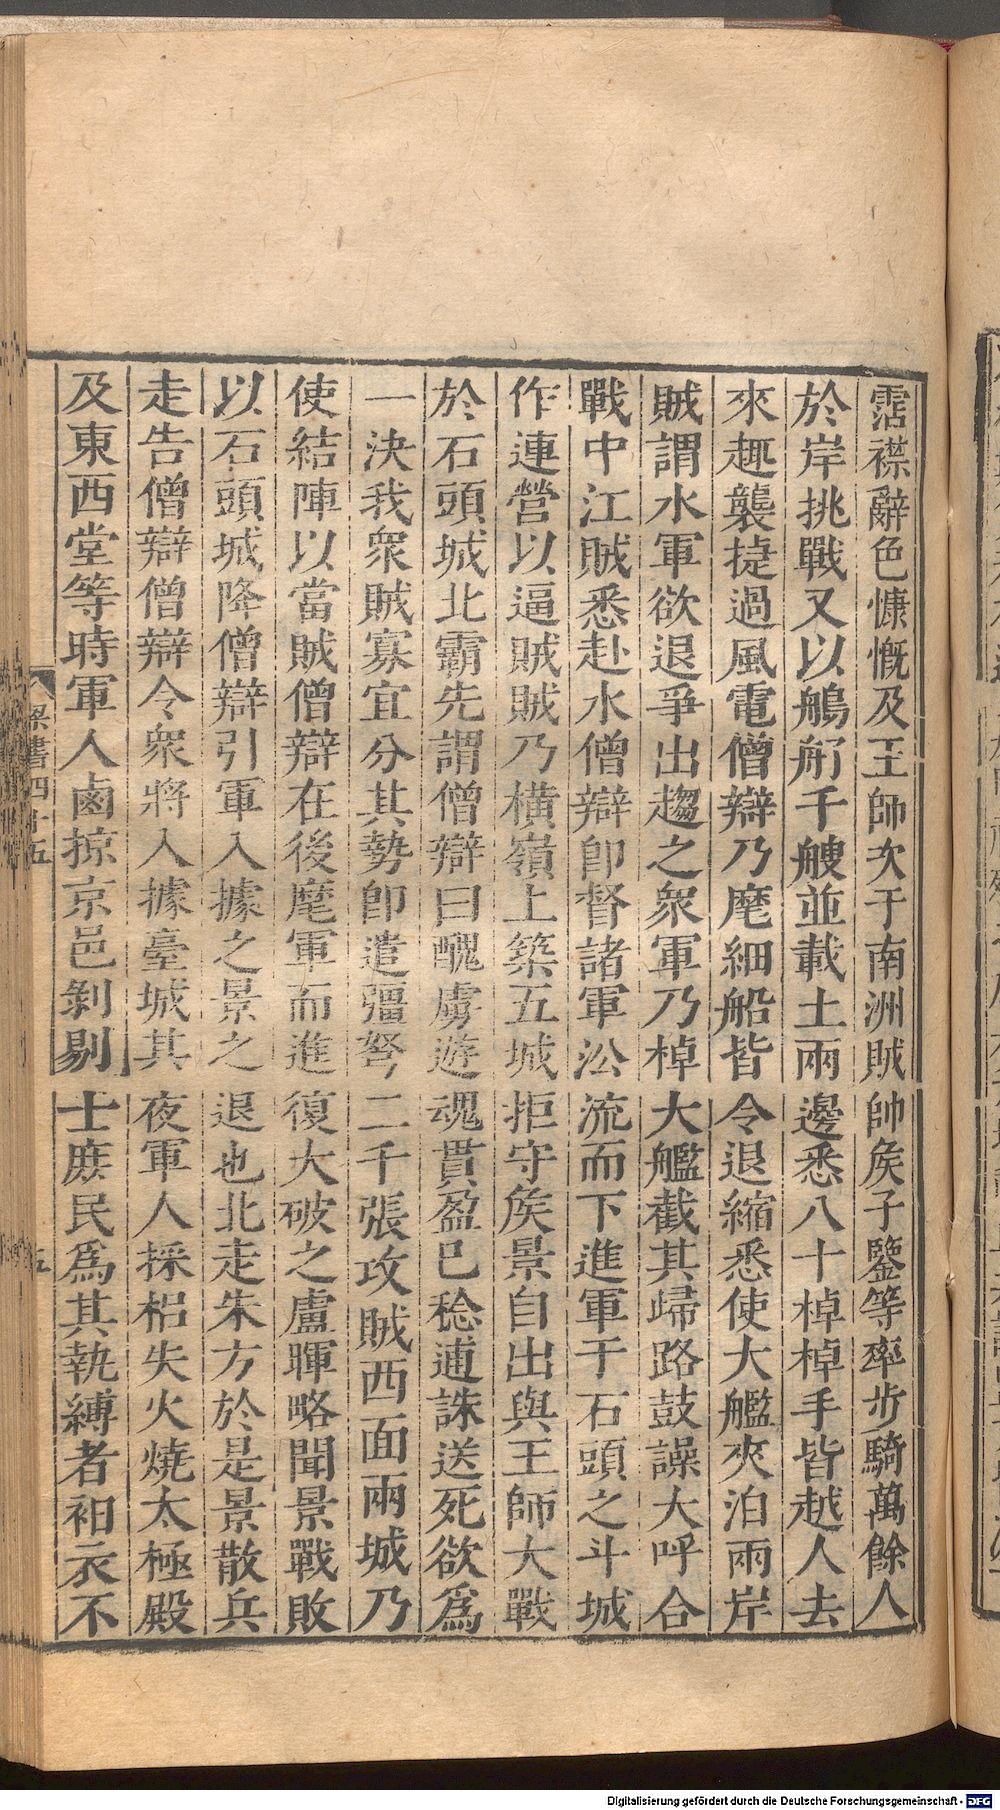 霑襟辭色慷慨及王師次于南洲賊帥矦子鑒等率步騎萬餘人
於岸挑戰又以鵃𦨴千艘並載士兩邊悉八十棹棹手皆越人去
來趣襲捷過風電僧辯乃麾細船皆令退縮悉使大艦夾泊兩岸
賊謂水軍欲退爭出趨之衆軍乃棹大艦截其歸路鼓譟大呼合
戰中江賊悉赴水僧辯即督諸軍㳂流而下進軍于石頭之斗城
作連營以逼賊賊乃橫嶺上築五城拒守矦景自出與王師大戰
於石頭城北霸先謂僧辯曰醜虜遊魂貫盈已稔逋誅送死欲爲
一決我衆賊寡宜分其勢即遣彊弩二千張攻賊西面兩城乃
使結陣以當賊僧辯在後麾軍而進復大破之盧暉略聞景戰敗
以石頭城降僧辯引軍入據之景之退也北走朱方於是景散兵
走告僧辯僧辯令衆將入據臺城其夜軍人採梠失火燒太極殿
及東西堂等時軍人鹵掠京邑剝剔士庶民爲其執縛者衵衣不
梁書四十五
五
Digitalisierung gefördert durch die Deutsche Forschungsgemeinschaft - DFG